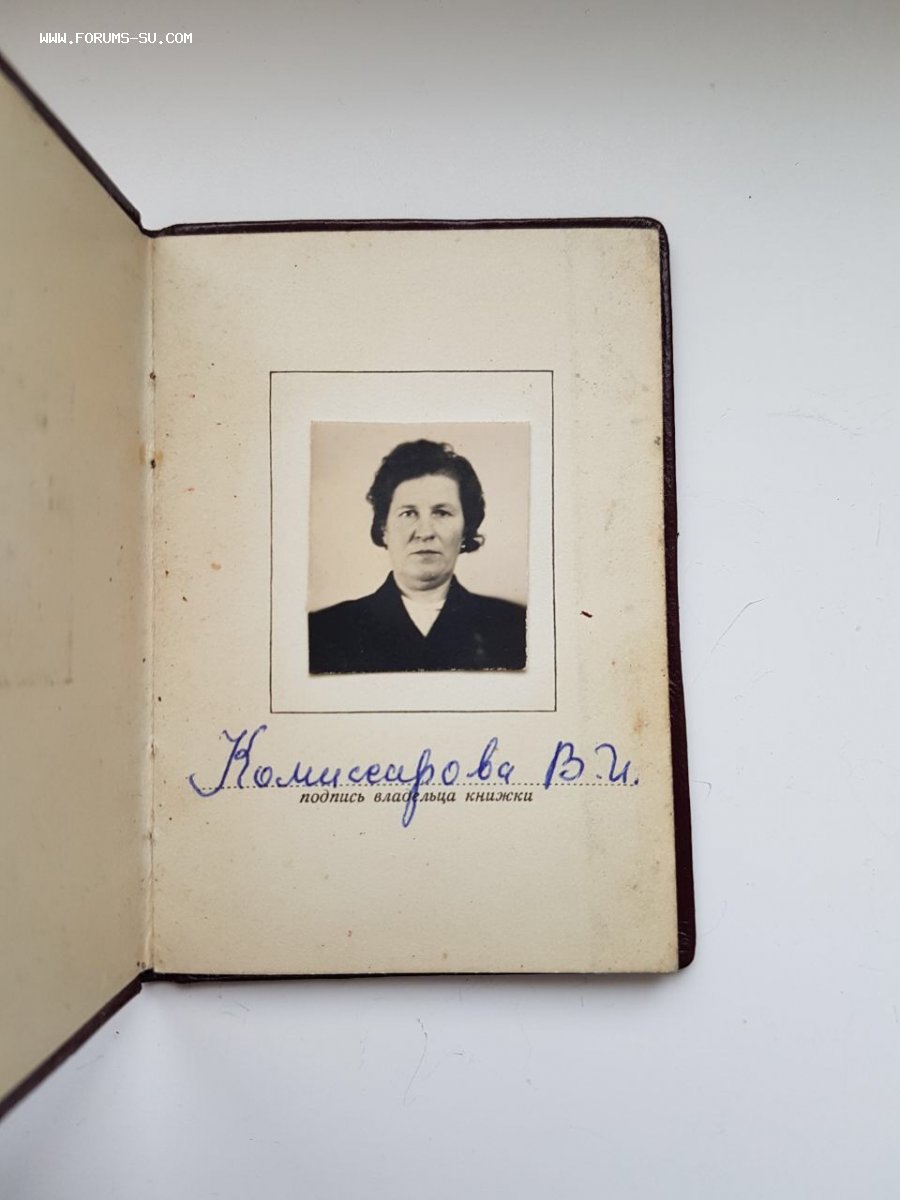 WWW.FORUMS-SU.COM
Комиссарова В.И.
подпись владельца книжки